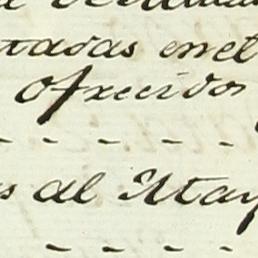 tadas en el
ofrecidos
s al Itay